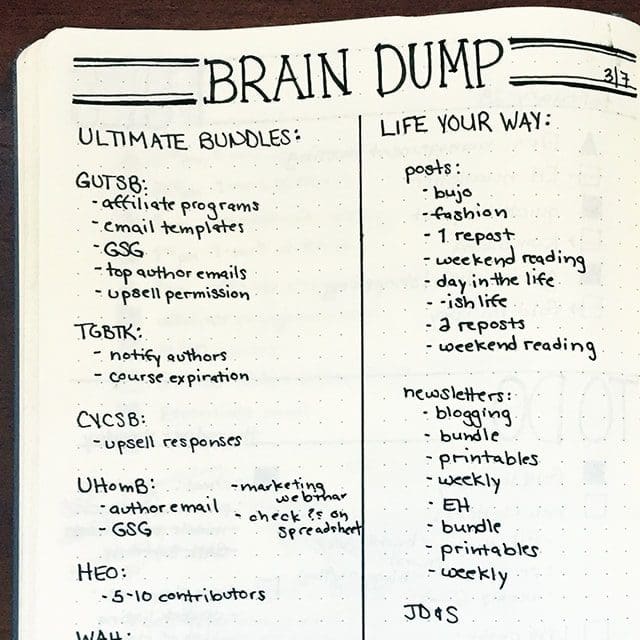 BRAIN DUMP
3/7
ULTIMATE BUNDLES:
GUTSB:
- affiliate programs
- email templates
- GSG
- top author emails
- upsell permission
TGBTK:
- notify authors
- course expiration
CVCSB:
- upsell responses
UHomB:
- author email
- GSG
- marketing
webinar
- check ?s on
spreadsheet
HEO:
- 5-10 contributors
WAH:
LIFE YOUR WAY:
posts:
- bujo
- fashion
- 1 repost
- weekend reading
- day in the life
- -ish life
- 2 reposts
- weekend reading
newsletters:
- blogging
- bundle
- printables
- weekly
- EH
- bundle
- printables
- weekly
JD&S